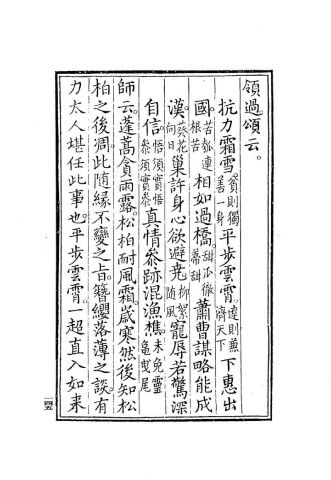 領過頌云。
抗力霜雪。貧則獨善一身平步雲霄。達則兼濟天下下惠出
國。苦瓠連根苦相如過橋。甜瓜徹蒂甜蕭曹謀略能成
漢。葵花向日巢許身心欲避堯。柳絮隨風寵辱若驚深
自信。悟須實悟叅須實叅真情叅跡混漁樵。未免靈龜曳尾
師云。蓬蒿貪雨露。松柏耐風霜。歲寒然後知松
柏之後凋。此隨緣不變之旨。簪纓落薄之談。有
力太人堪任此事也。平步雲霄。一超直入如来
一四五